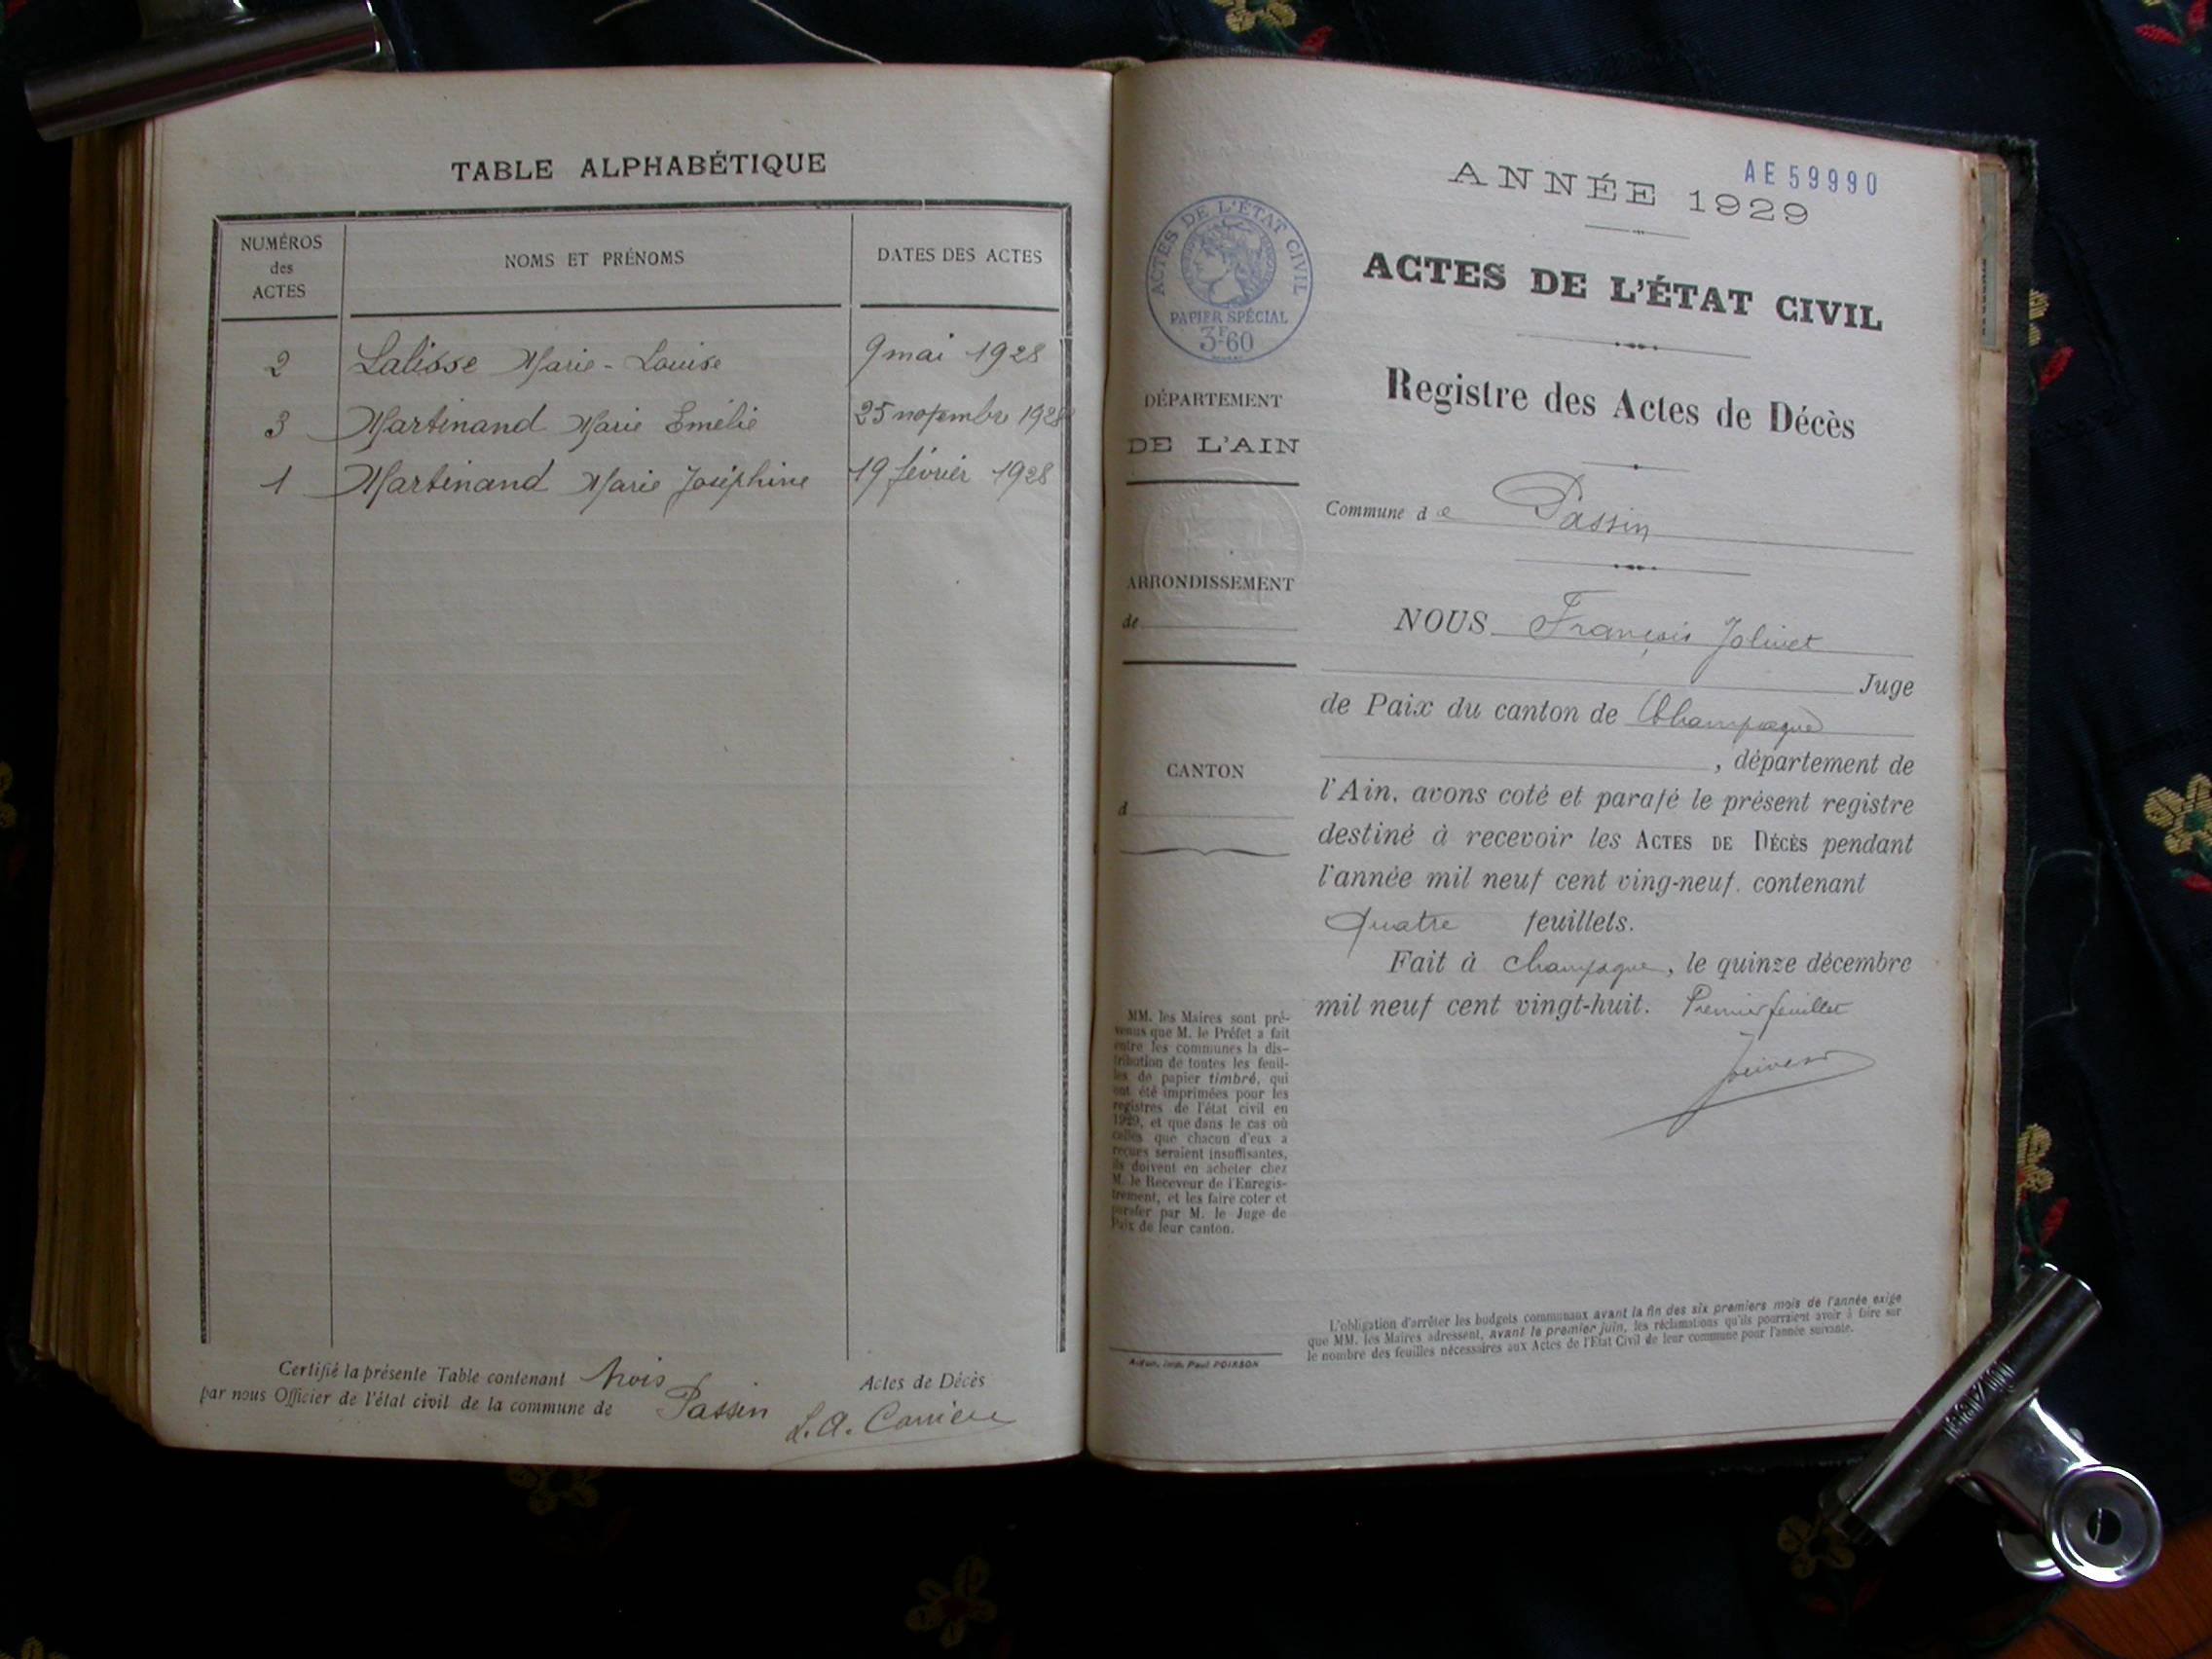 TABLE ALPHABÉTIQUE
NUMÉROS
des
ACTES
NOMS ET PRÉNOMS
DATES DES ACTES
2 Lalisse Marie-Louise 9 mai 1928
3 Martinand Marie Emélie 25 novembre 1928
1 Martinand Marie Joséphine 19 février 1928
Certifié la présente Table contenant trois Actes de Décès
par nous Officier de l'état civil de la commune de Passin
L. A. Carrière
AE 59990
ANNÉE 1929
ACTES DE L'ÉTAT CIVIL
PAPIER SPÉCIAL
3F60
ACTES DE L'ÉTAT CIVIL
Registre des Actes de Décès
DÉPARTEMENT
DE L'AIN
Commune de Passin
ARRONDISSEMENT
de
NOUS François Jolivet
Juge
de Paix du canton de Champagne
, département de
CANTON
d
l'Ain, avons coté et parafé le présent registre
destiné à recevoir les ACTES DE DÉCÈS pendant
l'année mil neuf cent ving-neuf, contenant
quatre feuillets.
Fait à Champagne, le quinze décembre
mil neuf cent vingt-huit. Premier feuillet
MM. les Maires sont pré-
venus que M. le Préfet a fait
entre les communes la dis-
tribution de toutes les feuil-
les de papier timbré, qui
ont été imprimées pour les
registres de l'état civil en
1929, et que dans le cas où
celles que chacun d'eux a
reçues seraient insuffisantes,
ils doivent en acheter chez
M. le Receveur de l'Enregis-
trement, et les faire coter et
parafer par M. le Juge de
Paix de leur canton.
L'obligation d'arrêter les budgets communaux avant la fin des six premiers mois de l'année exige
que MM. les Maires adressent, avant le premier juin, les réclamations qu'ils pourraient avoir à faire sur
le nombre des feuilles nécessaires aux Actes de l'État Civil de leur commune pour l'année suivante.
Imp. Paul POIRSON